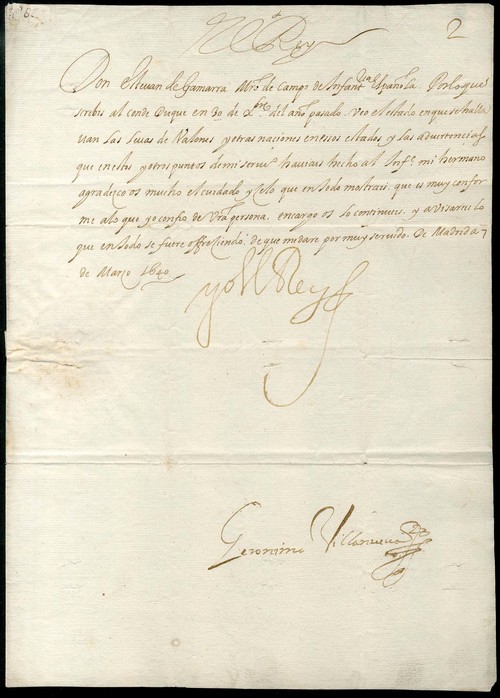 2
El Rey
Don Estevan de Gamarra Mro. de Campo de Infantria Española. Por lo que
scribis al Conde Duque en 30 de Xre. del año pasado. Veo el estado en que se halla
uan las leuas de Valones y otras naciones en essos estados y las aduertencias
que en estos y otros puntos de mi seruio. hauiais hecho al Infe. mi hermano
agradezco os mucho el cuidado y celo que en todo mostrais, que es muy confor
me a lo que yo confio de vra. persona, encargo os lo continueis, y auisareis lo
que en todo se fuere offreciendo, de que me dare por muy seruido. De Madrid a 7
de Março 1640
yo el Rey
Geronimo Villanueua